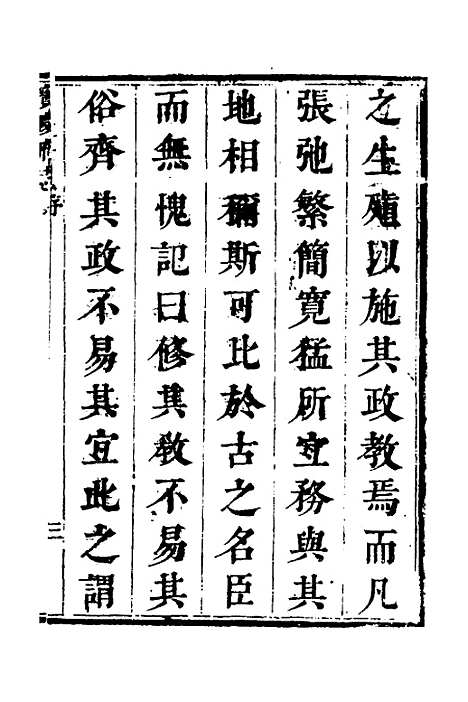 之生殖以施其政教焉而凡
張弛繁簡寬猛所宜務與其
地相稱斯可比於古之名臣
而無愧記曰修其教不易其
俗齊其政不易其宜此之謂
三